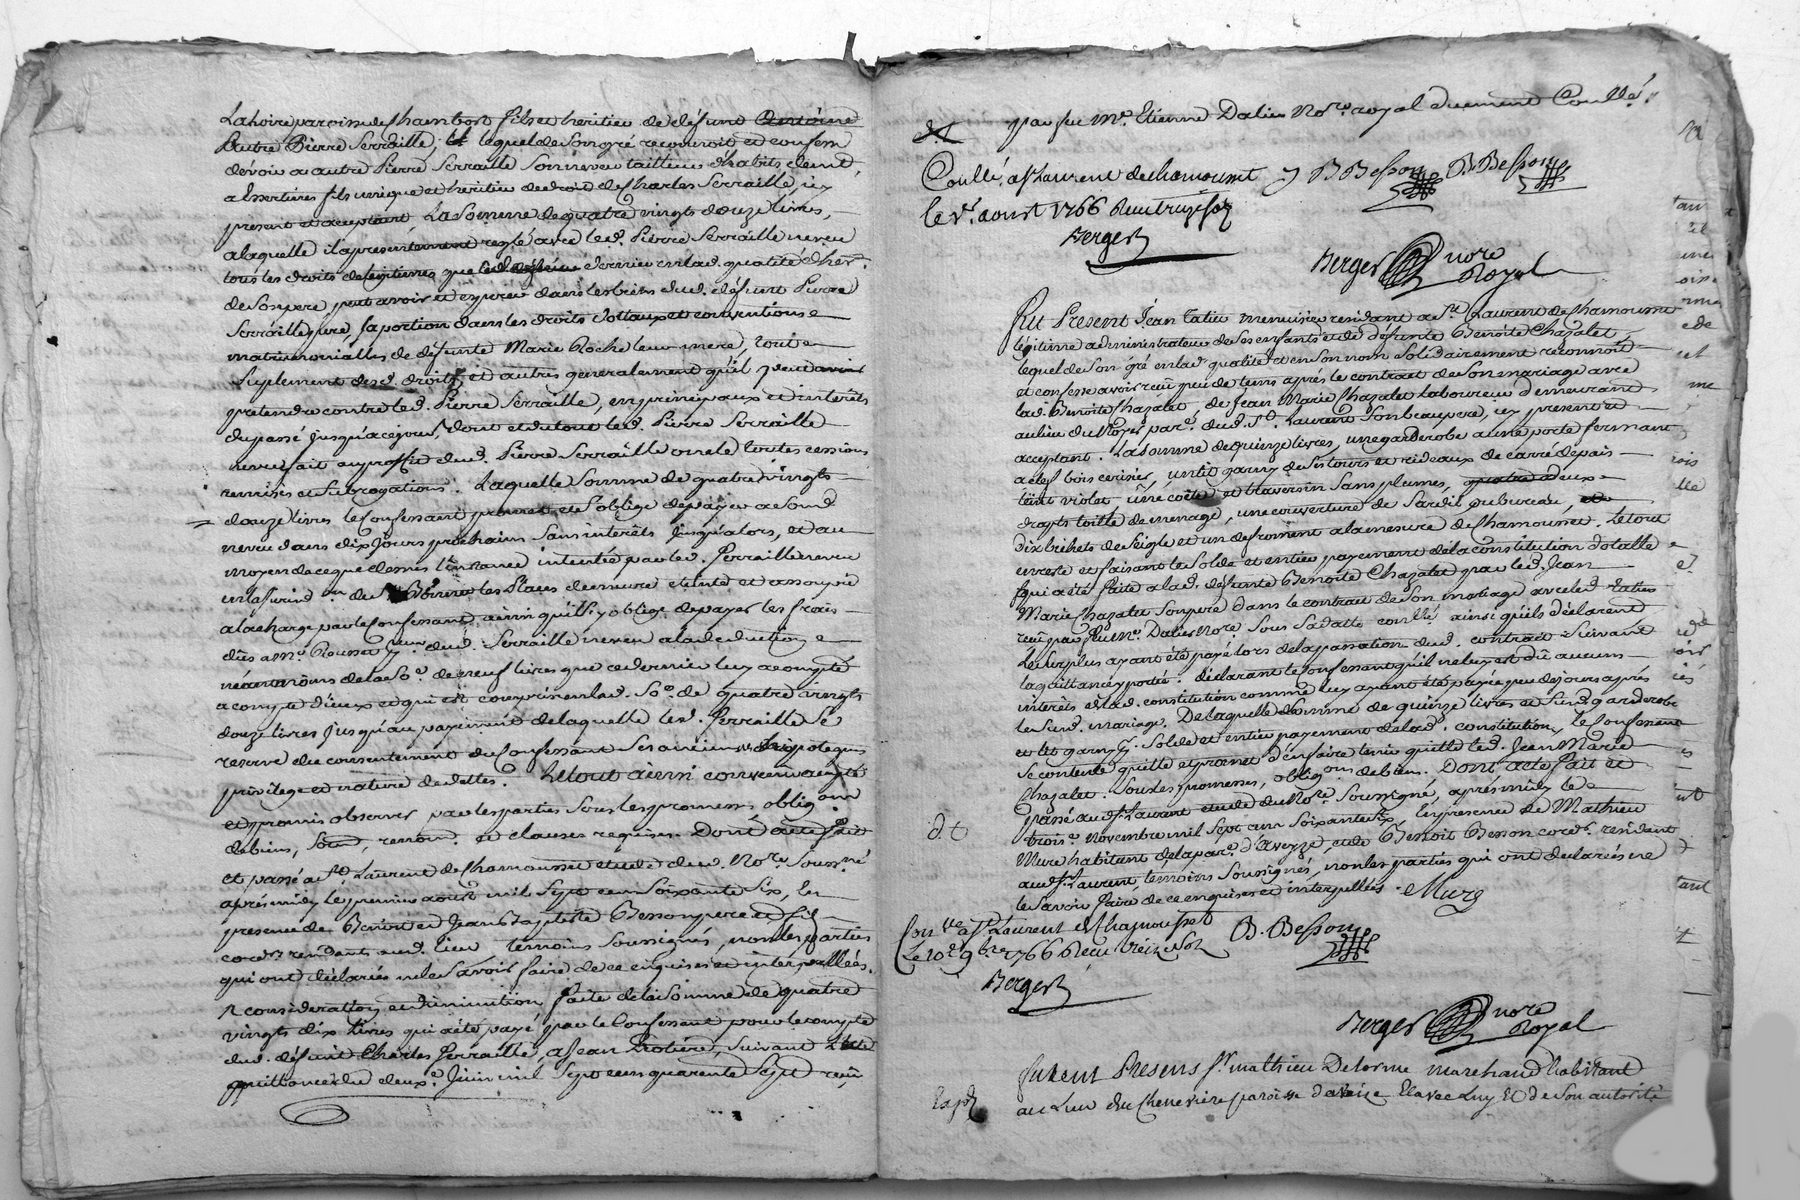 La hoire paroisse de chambost fils et heritier de défunt Antoine
autre Pierre Serraille, lequel de son gré reconnoit et confesse
devoir a autre Pierre Serraille son neveu tailleur d'habits demt.
a hauterives fils unique et heritier de droit de Charles Serraille, icy
present et acceptant, La somme de quatre vingts douze livres,
a laquelle il a presentement reglé avec led. Pierre Serraille neveu
tous les droits de legitimes que dernier en lad. qualité d'her.
de son pere, peut avoir et exiger dans les biens dud. défunt Pierre
Serraille père, sa portion dans les droits dottaux et conventions
matrimonialles de défunte Marie Roche leur mere, tout
suplement desd. droits et autres generalement qu'il peut avoir
pretendre contre led. Pierre Serraille, en principaux et intérêts
du passé jusqu'a ce jour, dont et du tout led. Pierre Serraille
neveu fait au proffit dud. Pierre Serraille oncle toutes cessions
remises et subrogations. Laquelle somme de quatre vingts
douze livres le confessant promet et s'oblige de payer a sond.
neveu dans dix jours prochains sans intérêts jusqu'alors, et au
moyen de ce que dessus l'instance intentée par led. Serraille neveu
en la jurisd.on du les Places demeure eteinte et assoupie
a la charge par le confessant ainsi qu'il s'y oblige de payer les frais
dûs a Me. Rousset pr. dud. Serraille neveu a la deduction
néantmoins de la so. de neuf livres que ce dernier luy a compté
a compte d'iceux et qui est comprise en lad. so. de quatre vingts
douze livres jusqu'au payement de laquelle led. Serraille se
reserve du consentement du confessant ses anciens hipoteques
privilege et nature de dettes. Le tout ainsi convenu accepté
et promis observer par les parties sous les promesses, oblig.ons
de biens, soum., renon. et clauses requises. Dont acte fait
et passé a St. Laurent de Chamousset etude dud. No.re soussné.
après midy le premier aoust mil sept cent soixante six, En
presence de Benoit et Jean Baptiste Besson pere et fils
cord.rs residents aud. lieu temoins soussignés, non les parties
qui ont déclarés ne le savoir faire de ce enquises et interpellées.
consideration et diminution faite de la somme de quatre
vingts dix livres qui a été payé par le Confessant pour le compte
dud. défunt Charles Serraille, a Jean Protiere, suivant
quittance du deux.e Juin mil sept cent quarante sept reçu
par feu Me. Etienne Dalier No.re royal duement Coullé.
Coullé. a St Laurent de chamousset
B Besson B. Besson
le 1er. aoust 1766 Recu treize sols
Berger
Berger nore
Royal
Fut Present Jean Tatier menuisier residant a St. Laurent de Chamousset
légitime administrateur de ses enfants et de défunte Benoite Chazalet,
lequel de son gré en lad. qualité et en son nom solidairement reconnoit
et confesse avoir reçû peu de tems après le contract de son mariage avec
lad. Benoite Chazalet, de Jean Marie Chazalet laboureur demeurant
au lieu du Noyer par. dud. St. Laurent son beaupere, icy present et
acceptant. La somme de quinze livres, une garderobe a une porte fermant
a clef bois cerisier, un lit garny de ses tours et rideaux de carré depais
teint violet, une coëte et traversin sans plumes, quatre deux
draps toille de menage, une couverture de Sardis ou bureau, et
dix bichets de seigle et un de froment a la mesure de Chamousset. Le tout
en reste et faisant le solde et entier payement de la constitution dotalle
qui a été faite a lad. défunte Benoite Chazalet par led. Jean
Marie Chazalet son pere dans le contract de son mariage avec led. Tatier
reçû par feu Me. Dalier No.re sous sa datte conllé ainsi qu'ils déclarent
Le surplus ayant été payé lors de la passation dud. contract suivant
la quittance y portée. déclarant le confessant qu'il ne luy est dû aucuns
intérêts de lad. constitution comme luy ayant été payée peu de jours après
le susd. mariage. De laquelle somme de quinze livres et susd. garderobe
et lit garny. Solde et entier payement de lad. constitution, le Confessant
se contente quitte et promet d'en faire tenir quitte led. Jean Marie
Chazalet. Sous les promesses, oblig.ons de biens. Dont acte fait et
passé aud. St Laurent etude du No.re soussigné, après midy le
d.t trois.e Novembre mil sept cent soixante six, En presence de Mathieu
Mure habitant de la par.e d'Aveyze, et de Benoit Besson cord.r resident
aud. St Laurent, temoins soussignés, non les parties qui ont declarées ne
le savoir faire de ce enquises et interpellées. Mure
Con.lle a St Laurent de Chamousset
B. Besson
Le 10e 9bre 1766 Recu treize sols
Berger
Berger nore
Royal
furent Presens Sr. mathieu Delorme marchand habitant
au Lieu du Chenevière paroisse d'aveize Et avec Luy Et de son autorité